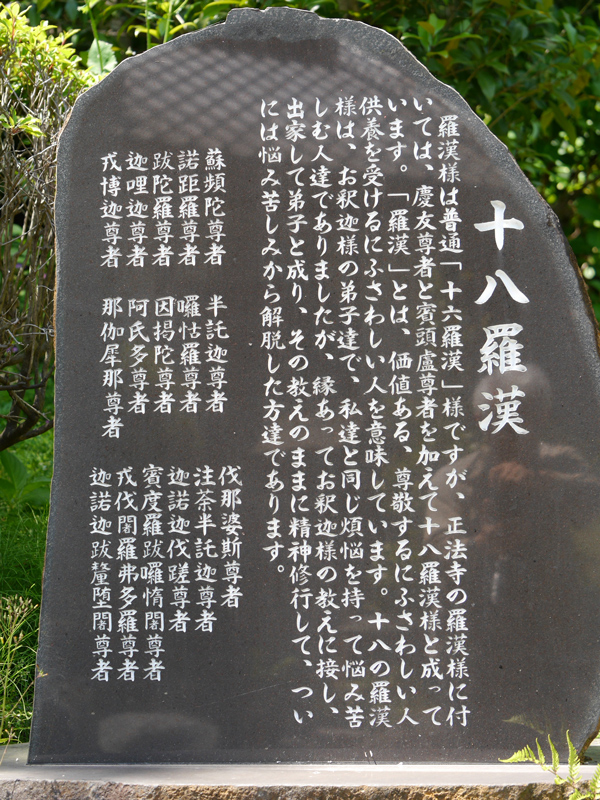 十八羅漢
羅漢様は普通「十六羅漢」様ですが、正法寺の羅漢様に付
いては、慶友尊者と賓頭盧尊者を加えて十八羅漢様と成って
います。「羅漢」とは、価値ある、尊敬するにふさわしい人
供養を受けるにふさわしい人を意味しています。十八の羅漢
様は、お釈迦様の弟子達で、私達と同じ煩悩を持って悩み苦
しむ人達でありましたが、縁あってお釈迦様の教えに接し、
出家して弟子と成り、その教えのままに精神修行して、つい
には悩み苦しみから解脱した方達であります。
蘇頻陀尊者
諾距羅尊者
跋陀羅尊者
迦哩迦尊者
戎博迦尊者
半託迦尊者
囉怙羅尊者
因掲陀尊者
阿氏多尊者
那伽犀那尊者
伐那婆斯尊者
注茶半託迦尊者
迦諾迦伐蹉尊者
賓度羅跋囉惰闍尊者
戎伐闍羅弗多羅尊者
迦諾迦跋釐堕闍尊者